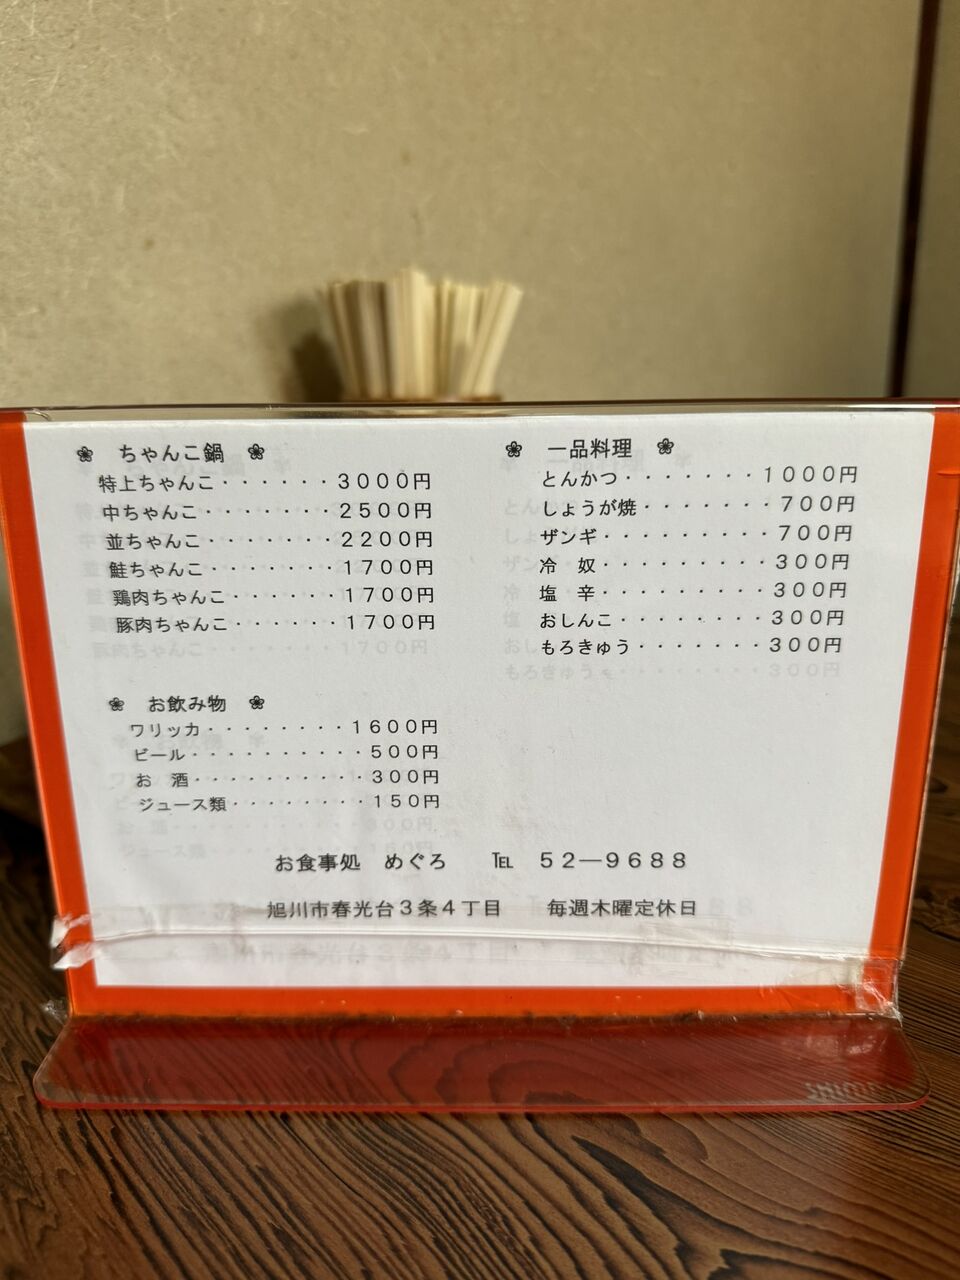 ❀ ちゃんこ鍋 ❀
特上ちゃんこ・・・・・・3000円
中ちゃんこ・・・・・・・2500円
並ちゃんこ・・・・・・・2200円
鮭ちゃんこ・・・・・・・1700円
鶏肉ちゃんこ・・・・・・1700円
豚肉ちゃんこ・・・・・・1700円
❀ お飲み物 ❀
ワリッカ・・・・・・・・1600円
ビール・・・・・・・・・・500円
お 酒・・・・・・・・・・300円
ジュース類・・・・・・・・150円
❀ 一品料理 ❀
とんかつ・・・・・・・1000円
しょうが焼・・・・・・・700円
ザンギ・・・・・・・・・700円
冷 奴・・・・・・・・・300円
塩 辛・・・・・・・・・300円
おしんこ・・・・・・・・300円
もろきゅう・・・・・・・300円
お食事処 めぐろ ℡ 52―9688
旭川市春光台3条4丁目 毎週木曜定休日